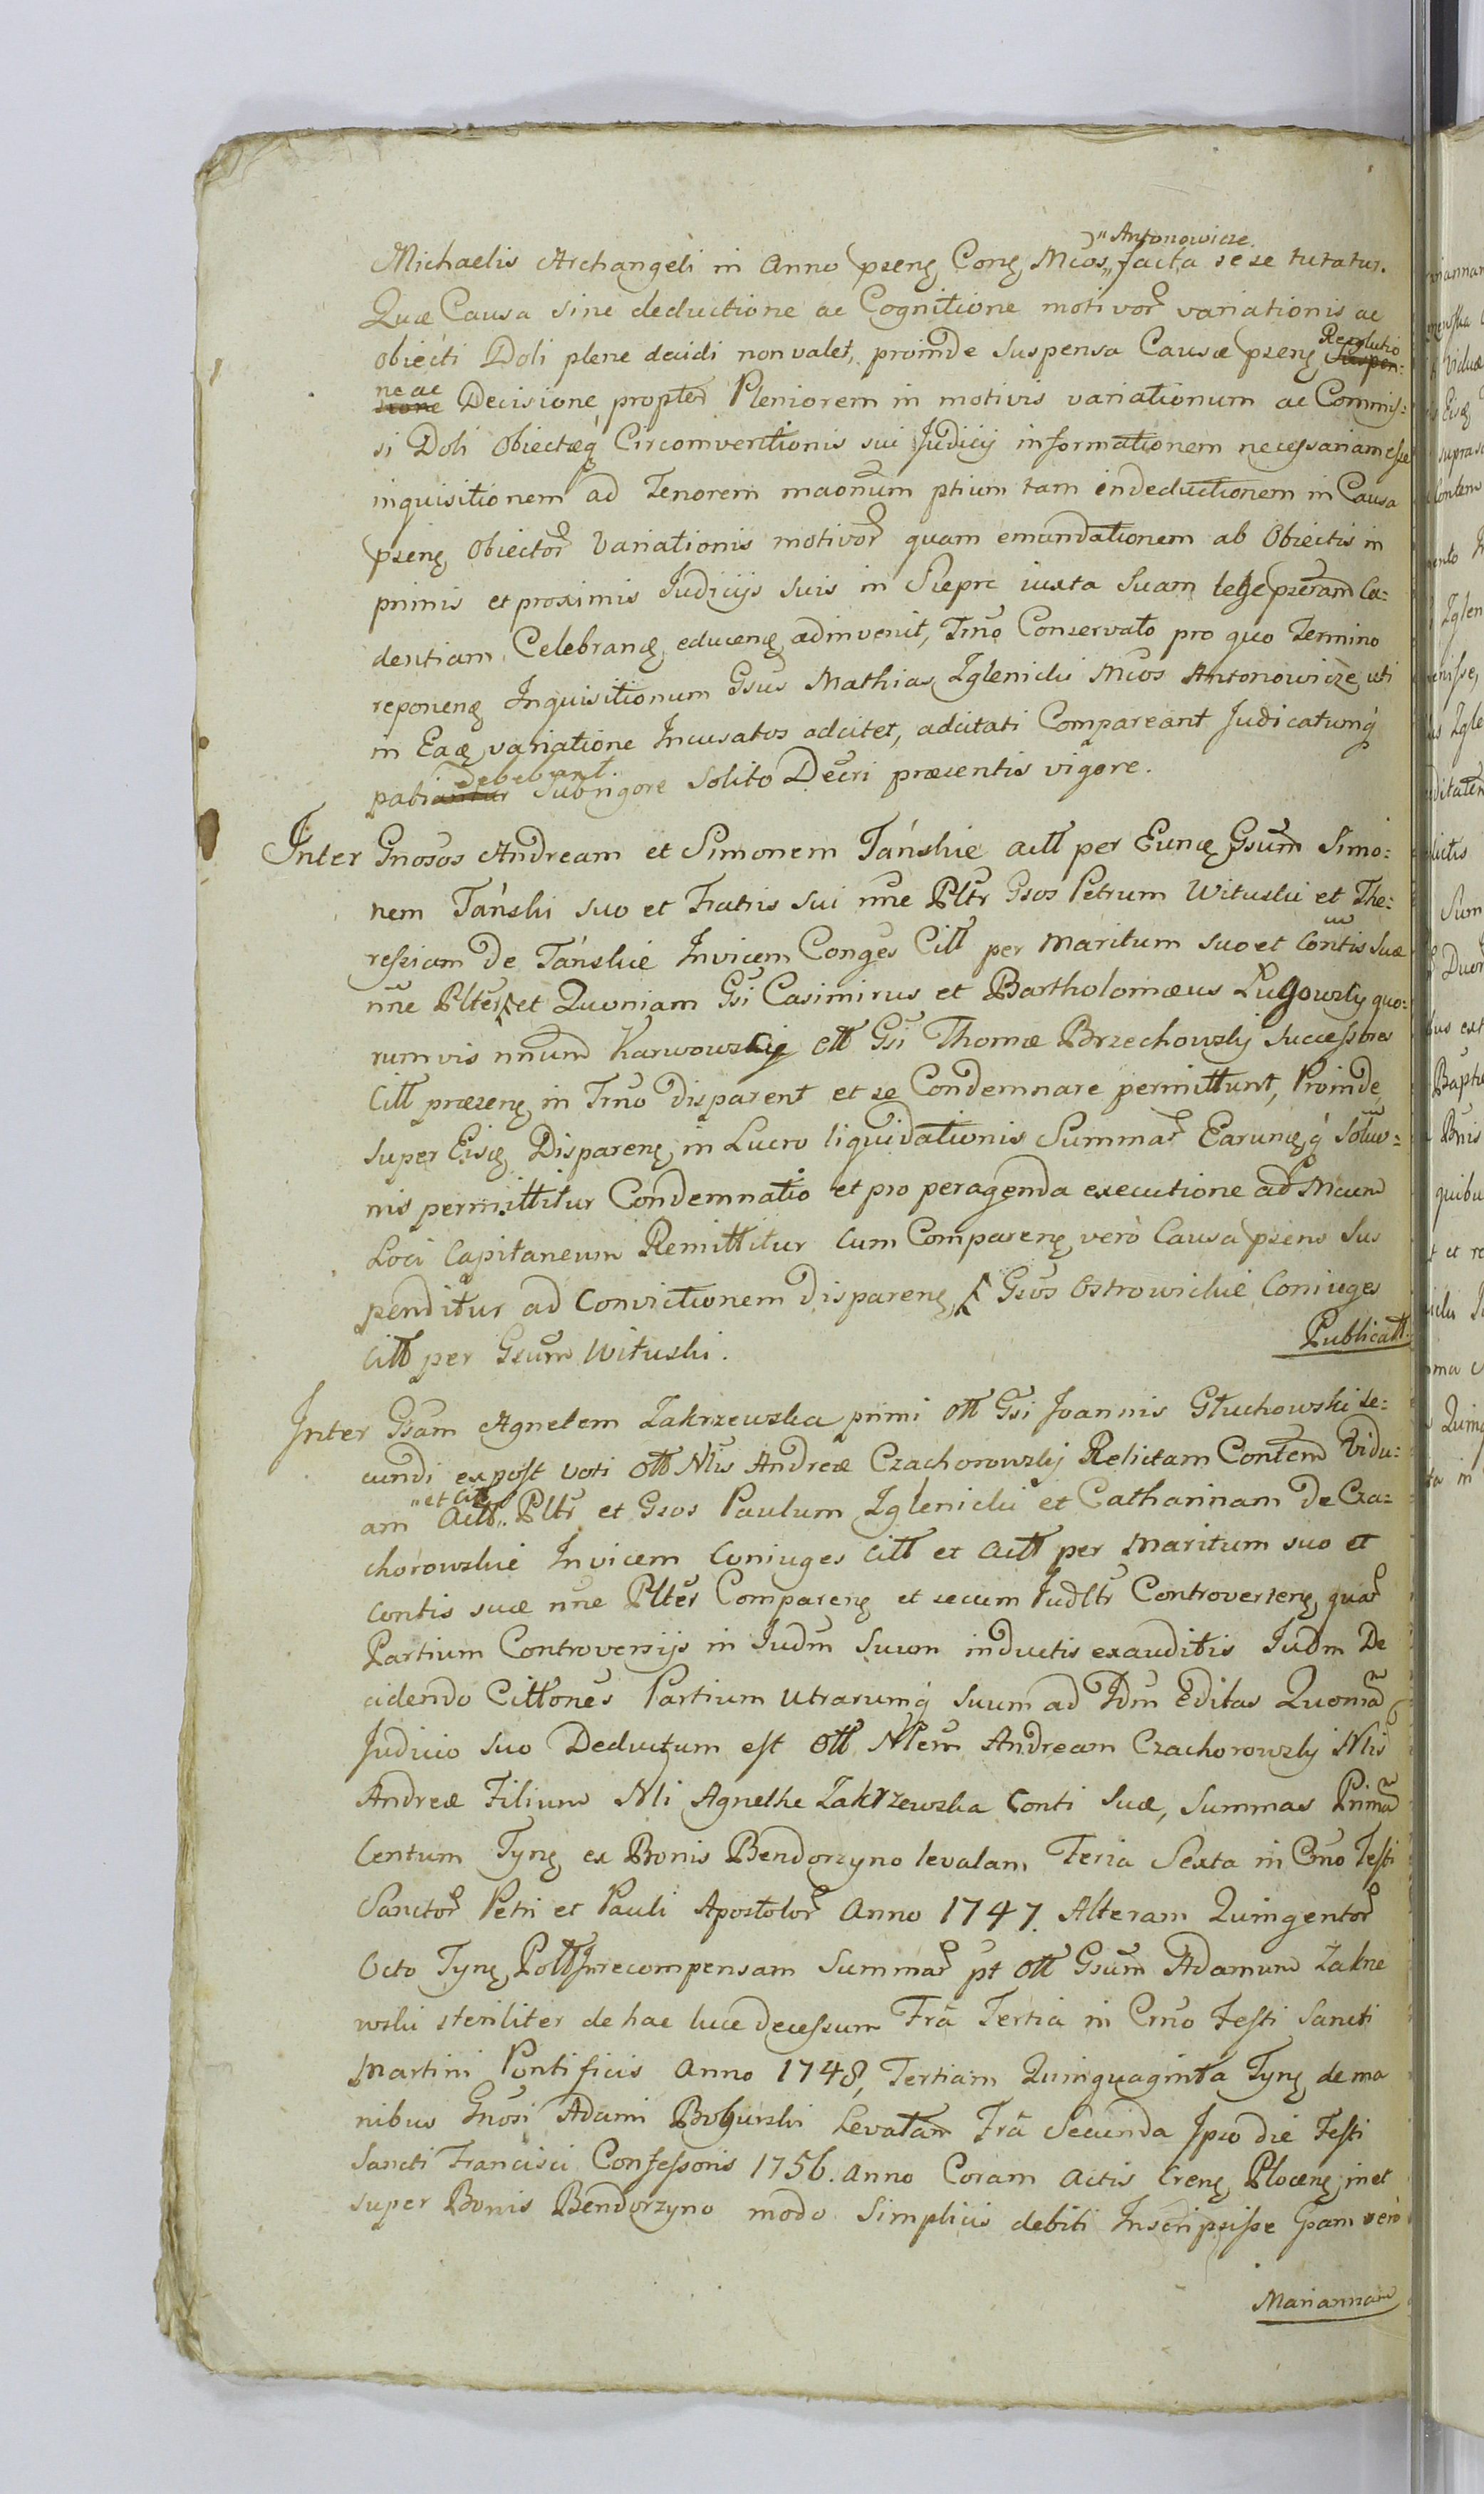 "Antonowicze
Michaelis Archangeli in Anno psenę Conę Mcos„ facta sese tutatur.
Quæ Causa sine deductione ac Cognitione motivor variationis ac
obiecti Doli plene decidi non valet, proinde suspensa Causæ psenę Suspen: Resolutio
sione ne ac Decisione propter Pleniorem in motivis variationum ac Commis:
si Doli Obiectæq́ Circomventionis sui Judicij informationem necessariam esse
inquisitionem ad Tenorem maonum ptium tam in deductionem in Causa
psenę Obiector Variationis motivor quam emundationem ab Obiectis in
primis et proximis Judicijs suis in Sieprc iuxta suam lege pseram Ca:
dentiam Celebranę educenę adinvenit, Tmo Conservato pro quo Termino
reponenę Inquisitionum Gsus Mathias Iglenicki Mcos Antonowicze uti
in Eaę variatione Incusatos adcitet, adcitati Compareant Judicatumq́
pati debebant. antur sub rigore solito Decri præsentis vigore.
Inter Gnosos Andream et Simonem Tánskie actt per Eunę Gsum Simo:
nem Tánski suo et Fratris sui nne Pltr Gsos Petrum Wituski et The:
ressiam de Tánskie Invicem Conges Citt per Maritum suo et Contis suæ
nne Plter et Quoniam Gsi Casimirus et Bartholomæus Lugowscy quo:
rumvis nnum Karwowscij ott Gsi Thomæ Brzechowskj Successores
Citt præsenę in Tmo disparent et se Condemnare permittunt, Proinde
super Eisę Disparenę in Lucro liquidationis Summar Earunę q́ Soluo:
nis permittitur Condemnatio et pro peragenda executione ad Mcum
Loci Capitaneum Remittitur cum Comparenę verò Causa psens sus
penditur ad Convictionem disparenę, Gsos Ostrowickie Coniuges
Citt per Gsum Wituski.
Publicatt.
Inter Gsam Agnetem Zakrzewska primi ott Gsi Joannis Głuchowski se:
cundi ex post voti ott Mis Andreæ Czachorowskj Relictam Contem Vidu:
am Actt "et Citt„ Pltr et Gsos Paulum Iglenicki et Catharinam de Cza:
chórowskie Invicem Coniuges Citt et Actt per Maritum suo et
Contis suæ nne Plter Comparenę et secum Judltr Controvertenę quar
Partium Controversijs in Judm suum inductis exauditis Judm De
cidendo Cittones Partium Utrarumq́ suum ad Jdm Editas Quoniã
Judicio suo Deductum est ott Mem Andream Czachorowskj Mis
Andreæ Filium Mi Agnethe Zakrzewska Conti suæ, Summas Primã
Centum Tynę ex Bonis Bendorzyno levatam Feria Sexta in Cmo Festi
Sanctor Petri et Pauli Apostolor Anno 1747. Alteram Quingentor
Octo Tynę Poltt In recompensam Summar pt ott Gsum Adamum Zakrze
wski steriliter de hac luce decessum Frã Tertia in Cmo Festi Sancti
Martini Pontificis Anno 1748, Tertiam Quinquaginta Tynę de ma
nibus Gnosi Adami Bogurski Levatam Frã Secunda Jpso die Festi
Sancti Francisci Confessoris 1756. Anno Coram Actis Crenę Plocenę in et
super Bonis Bendorzyno modo Simplicis debiti Inscripsisse Gsam verò
Mariannam